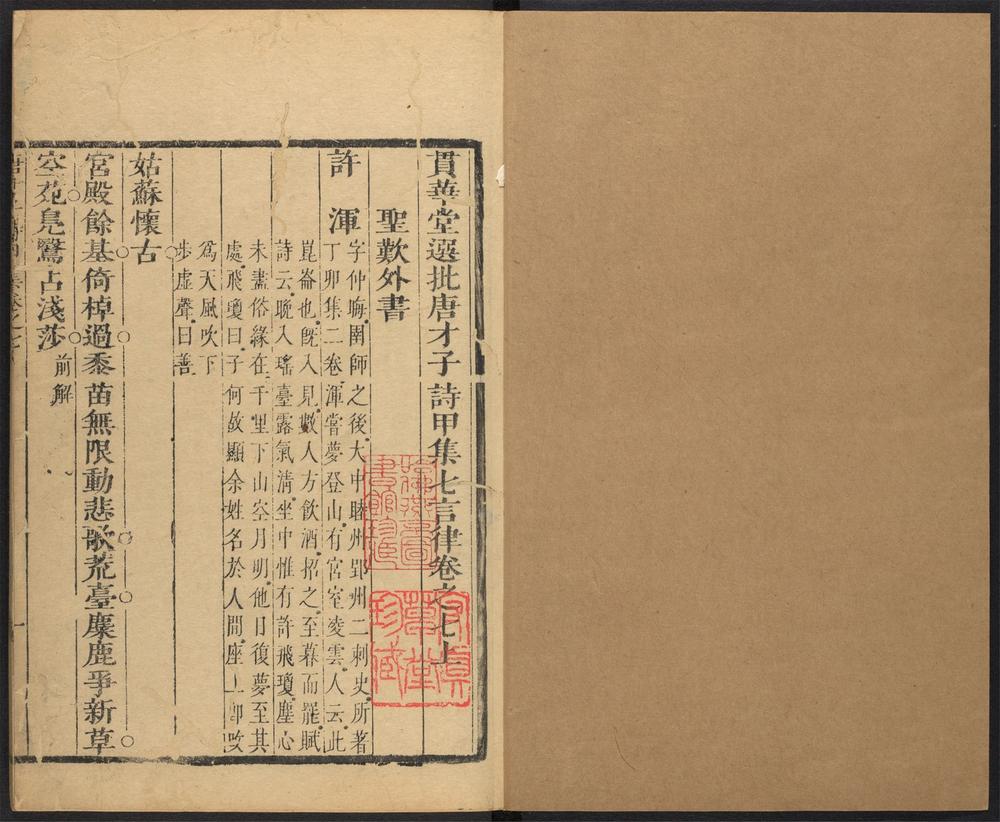 貫華堂選批唐才子詩甲集七言律卷之七上
聖歎外書
許渾
字仲晦圉師之後大中睦州郢州二刺史所著
丁卯集二卷渾嘗夢登山有宮室凌雲人云此
崑崙也旣入見數人方飲酒招之至暮而罷賦
詩云曉入瑤臺露氣淸坐中惟有許飛瓊塵心
未盡俗緣在十里下山空月明他日復夢至其
處飛瓊曰子何故顯余姓名於人間座上卽改
爲天風吹下
步虛聲曰善
姑蘇懷古
宮殿餘基倚棹過黍苗無限動悲歌荒臺麋鹿爭新草
空苑鳧鷖占淺莎前解